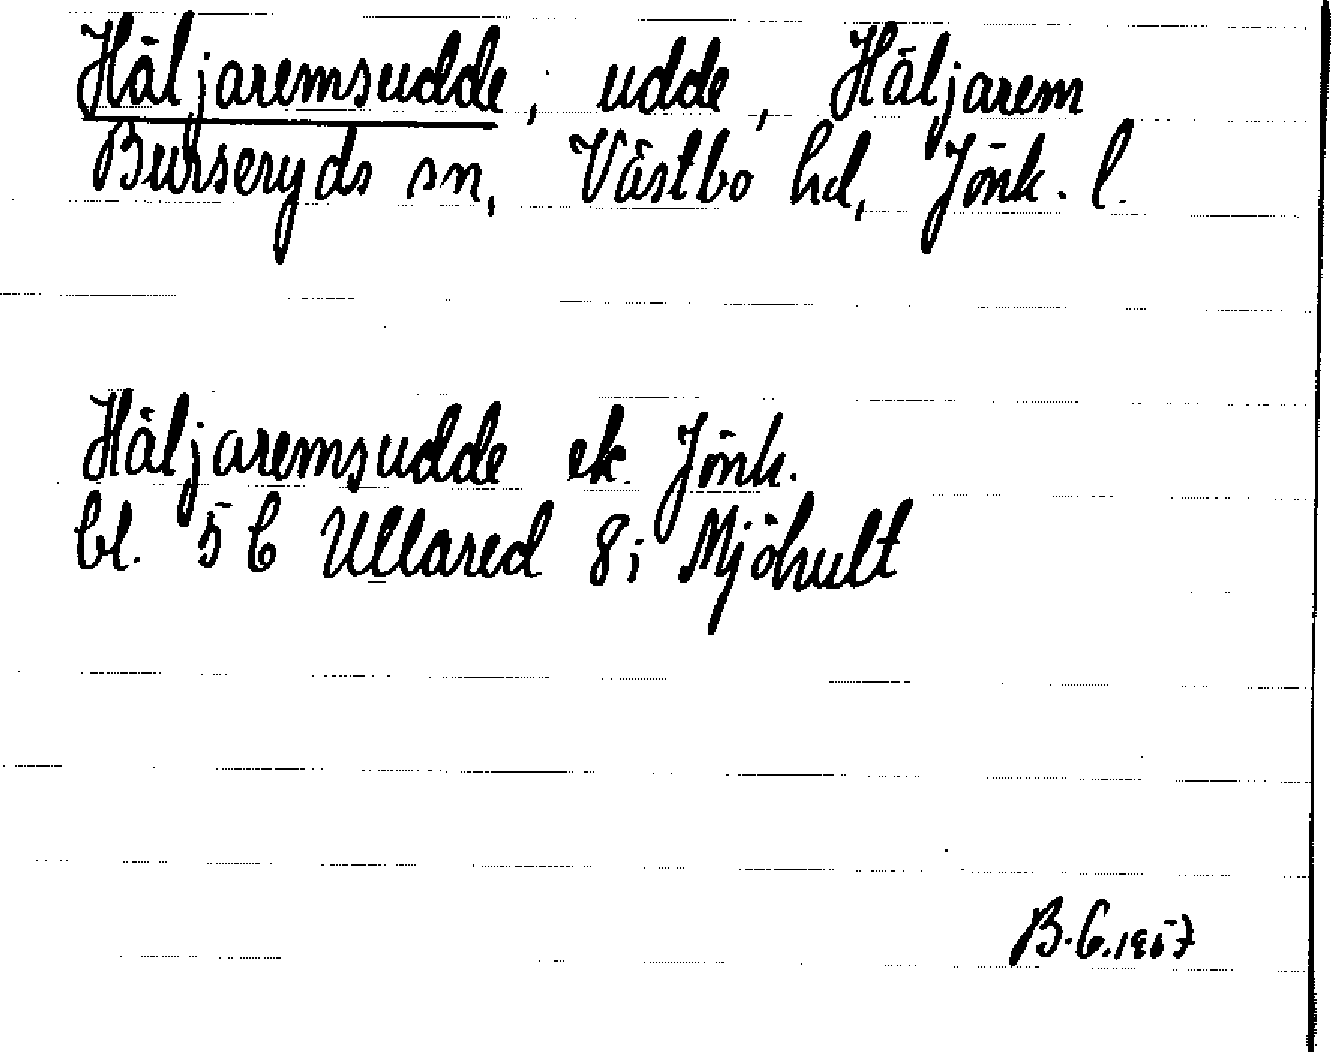 Häljaremsudde, udde, Häljarem
Burseryds sn, Västbo hd, Jönk. l.
Häljaremsudde ek. Jönk.
bl. 5 C Ullared 8 i Mjöhult
B.G. 1957